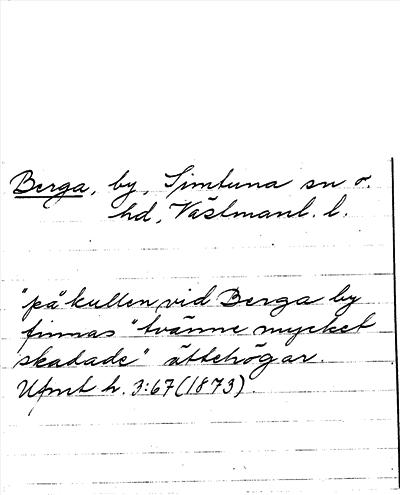 Berga, by, Simtuna sn o.
hd, Västmanl. l.
"på kullen vid Berga by
finnas "tvänne mycket
skadade" ättehögar.
Ufmt h. 3:67 (1873).